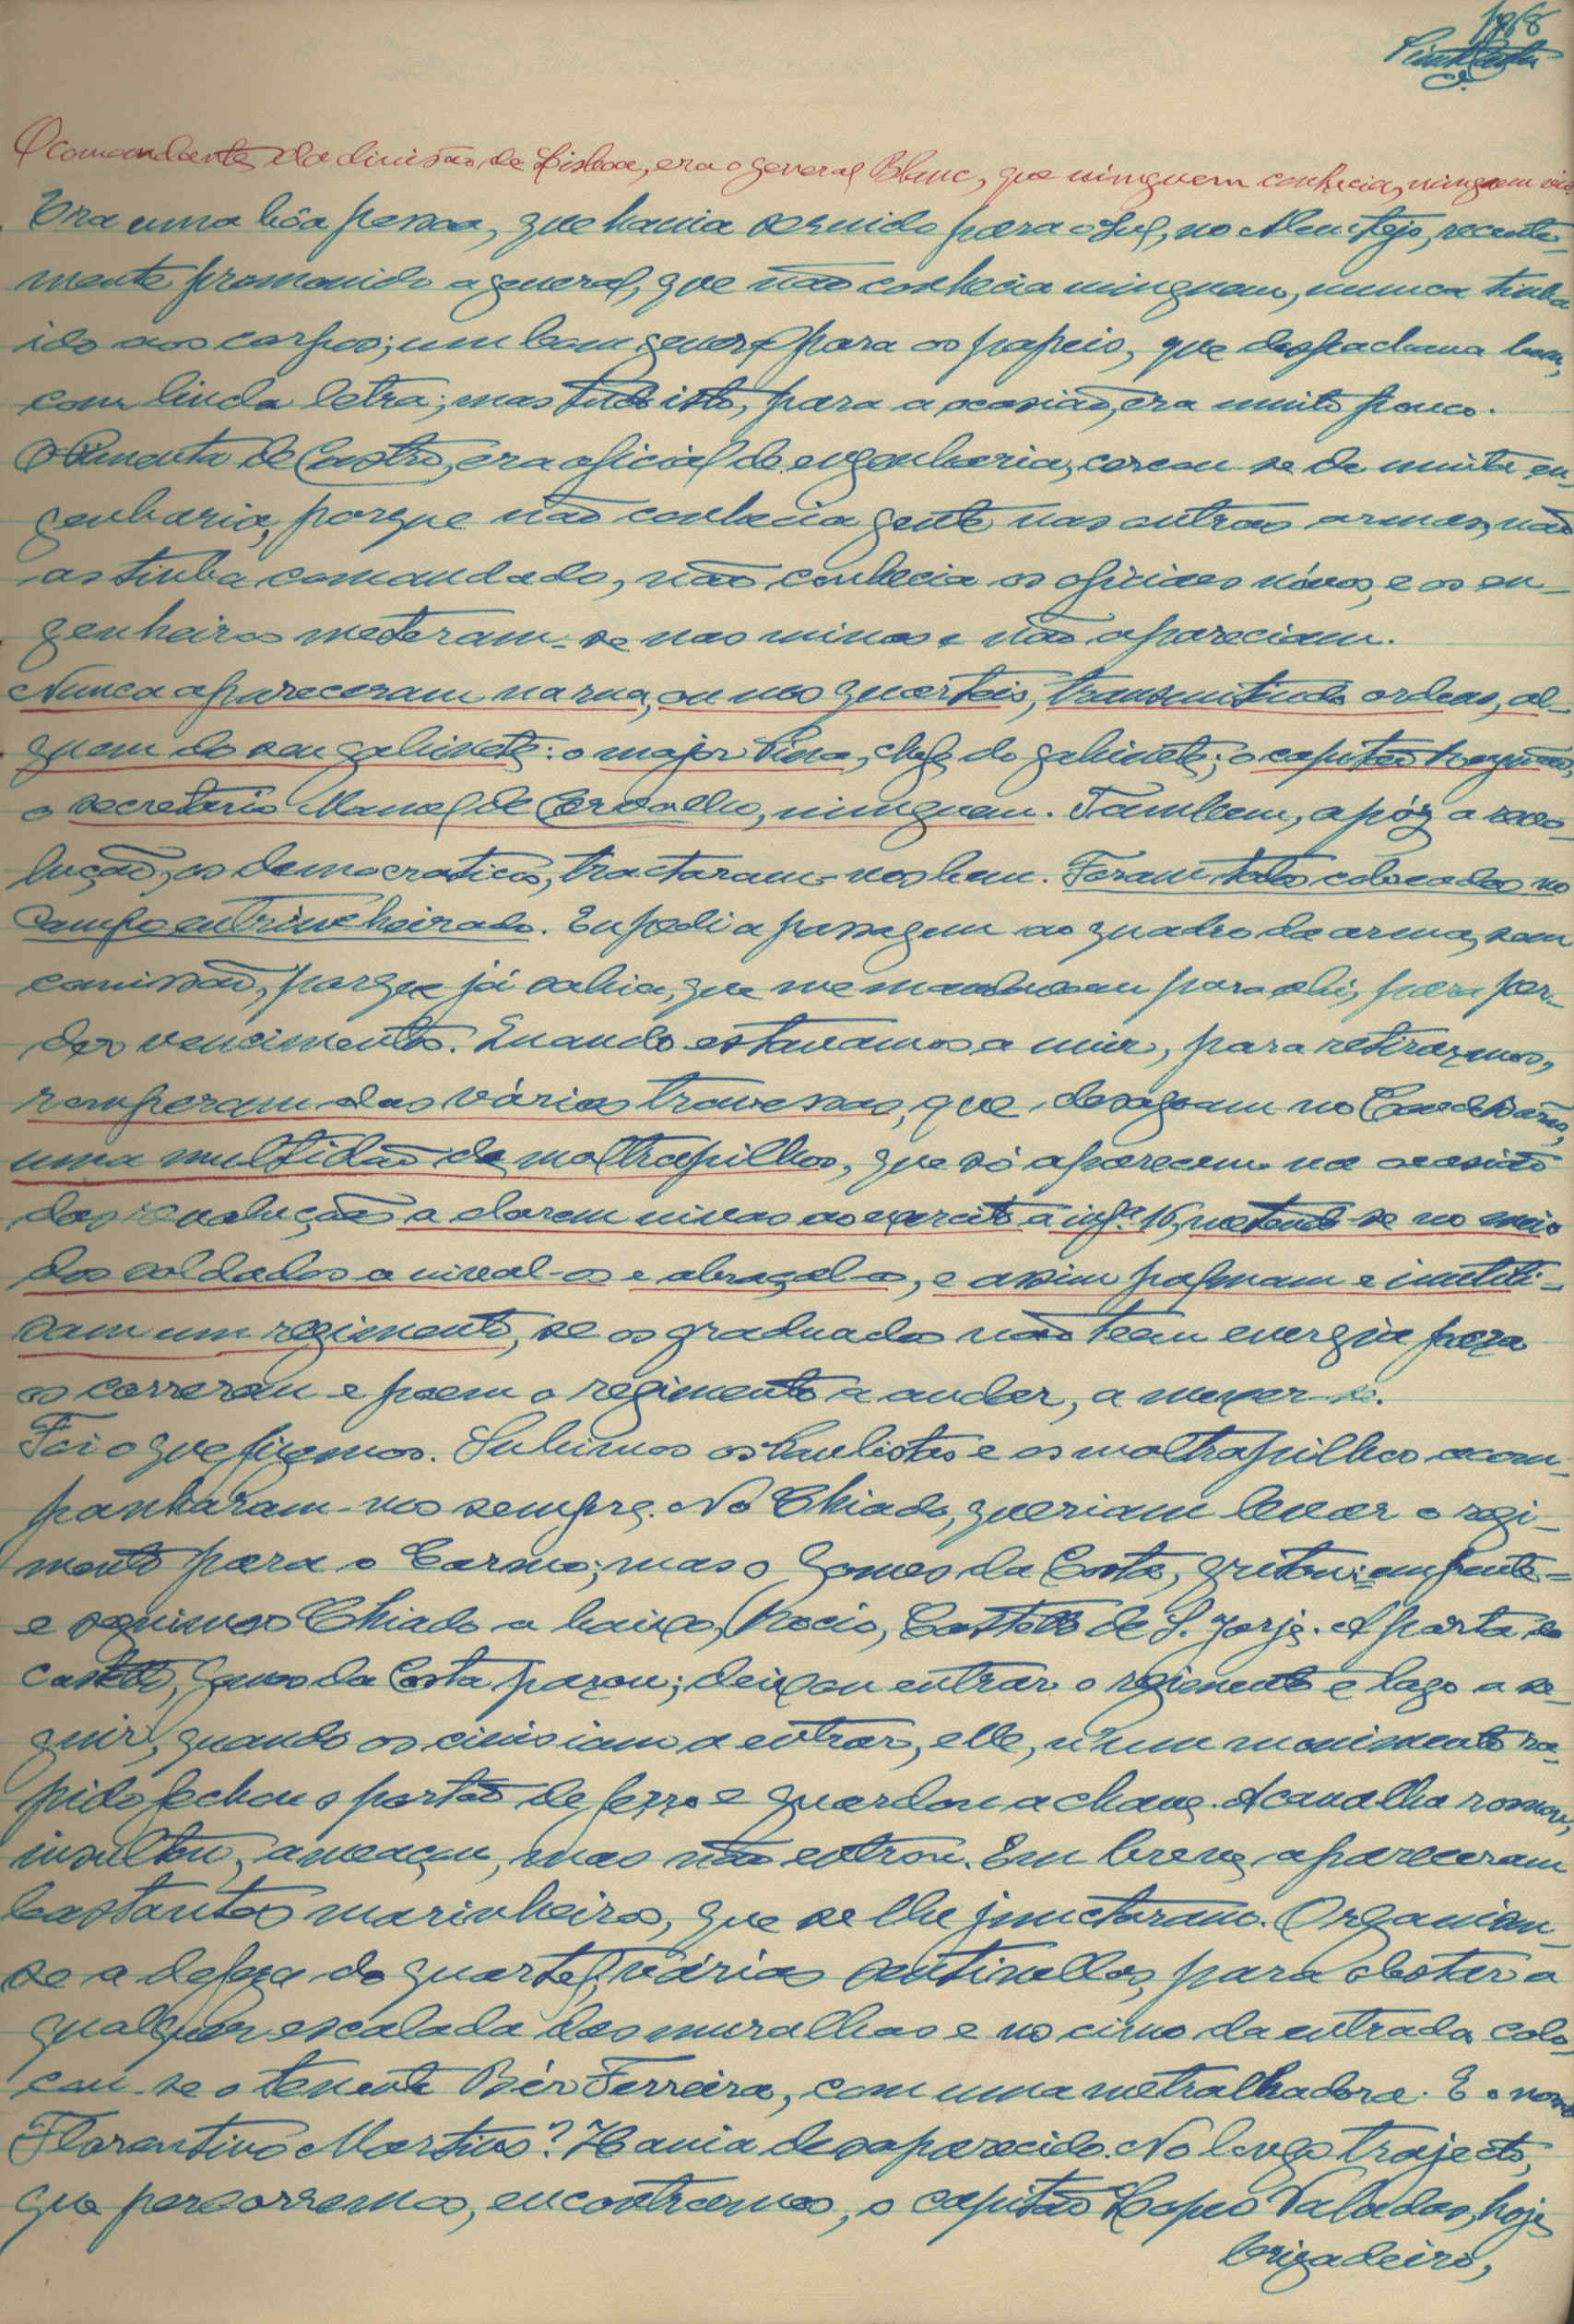 pg 8
O comandante da divisão de Lisboa, era o general Blanc, que ninguem conhecia, ninguem viu.
Era uma bôa pessoa, que havia servido para o Sul, no Alemtejo, recente-
mente promovido a general, que não conhecia ninguem, nunca tinha
ido aos corpos; um bom general para os papeis, que despachava bem,
com linda letra; mas tudo isto, para a ocasião, era muito pouco.
O Pimenta de Castro, era oficial de engenharia, cercou-se de muita en-
genharia, porque não conhecia gente nas outras armas, não
as tinha comandado, não conhecia os oficiaes nóvos, e os en-
genheiros meteram-se nas minas e não apareciam.
Nunca apareceram na rua, ou nos quarteis, transmitindo ordens, al-
guem do seu gabinete: o major Lima, chefe do gabinete; o capitão
o secretario Manoel de Carvalho, ninguem. Tambem, apóz a revo-
lução, os democraticos, tractaram-nos bem. Foram todos colocados no
Campo entrincheirado. Eu pedi a passagem ao quadro da arma, sem
comissão, porque já sabia, que me mandavam para ahi, para per-
der vencimento. Quando estavamos a unir, para retirarmos,
romperam das várias travessas, que desaguam no
uma multidão de maltrapilhos, que só aparecem na ocasião
das revoluções a darem vivas ao exercito a infª. 16, metendo-se no meio
dos soldados a vival-os e abraçal-os, e assim pasmam e inutili-
sam um regimento, se os graduados não teem energia para
os correrem e poem o regimento a andar, a mexer-se.
Foi o que fizemos. Subimos os Paulistas e os maltrapilhos acom-
panharam-nos sempre. No Chiado, queriam levar o regi-
mento para o Carmo; mas o Gomes da Costa, gritou: = em frente =
e seguimos Chiado a baixo, Rocio, Castello de S. Jorje. Á porta do
castello, Gomes da Costa parou; deixou entrar o regimento e logo a se-
guir, quando os civis iam a entrar, elle, n'um movimento ra-
pido fechou o portão de ferro e guardou a chave. A canalha rosnou,
insultou, ameaçou, mas não entrou. Em breve, apareceram
bastantes marinheiros, que se lhe junctaram. Organisou-
se a defeza do quartel, várias sentinellas, para obstar a
qualquer escalada das muralhas e no cimo da entrada colo-
cou-se o tenente Bér Ferreira, com uma metralhadora. E o nosso
Florentino Martins? Havia desaparecido. No longo trajecto,
que percorremos, encontramos, o capitão Lopes Valadas, hoje
brigadeiro,